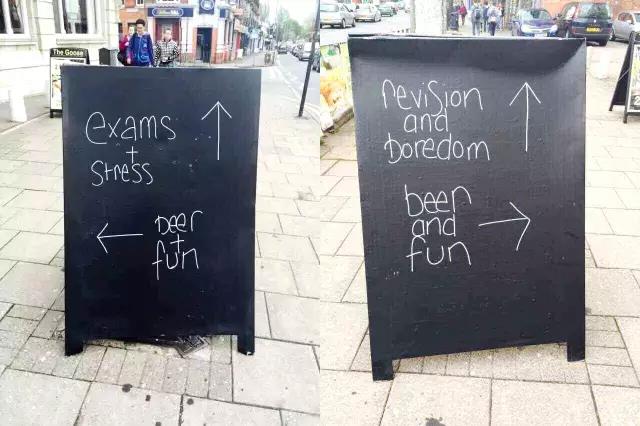 The Goose
exams
+
stress
beer
+
fun
revision
and
boredom
beer
and
fun